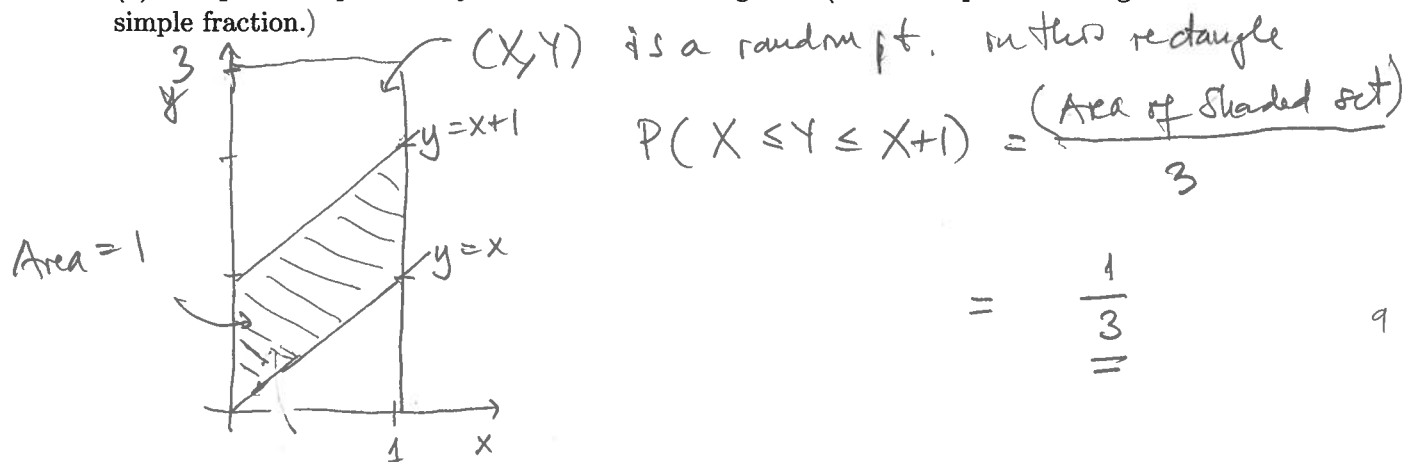 simple fraction.)
3
y
(X,Y) is a random pt. in this rectangle
y=x+1
P(X ≤ Y ≤ X+1) = (Area of shaded set)
3
Area = 1
y=x
= 1
3
9
1
x